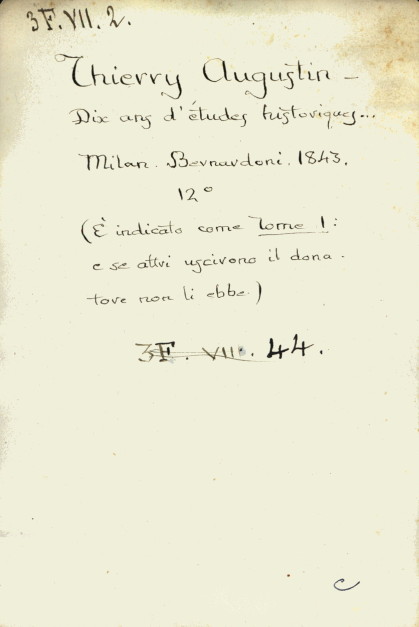 3F.VII.2.
Thierry Augustin –
Dix ans d'études historiques...
Milan. Bernardoni. 1843.
12°
(È indicato come Tome I:
e se altri uscirono il dona-
tore non li ebbe.)
3F. VII. 44.
c